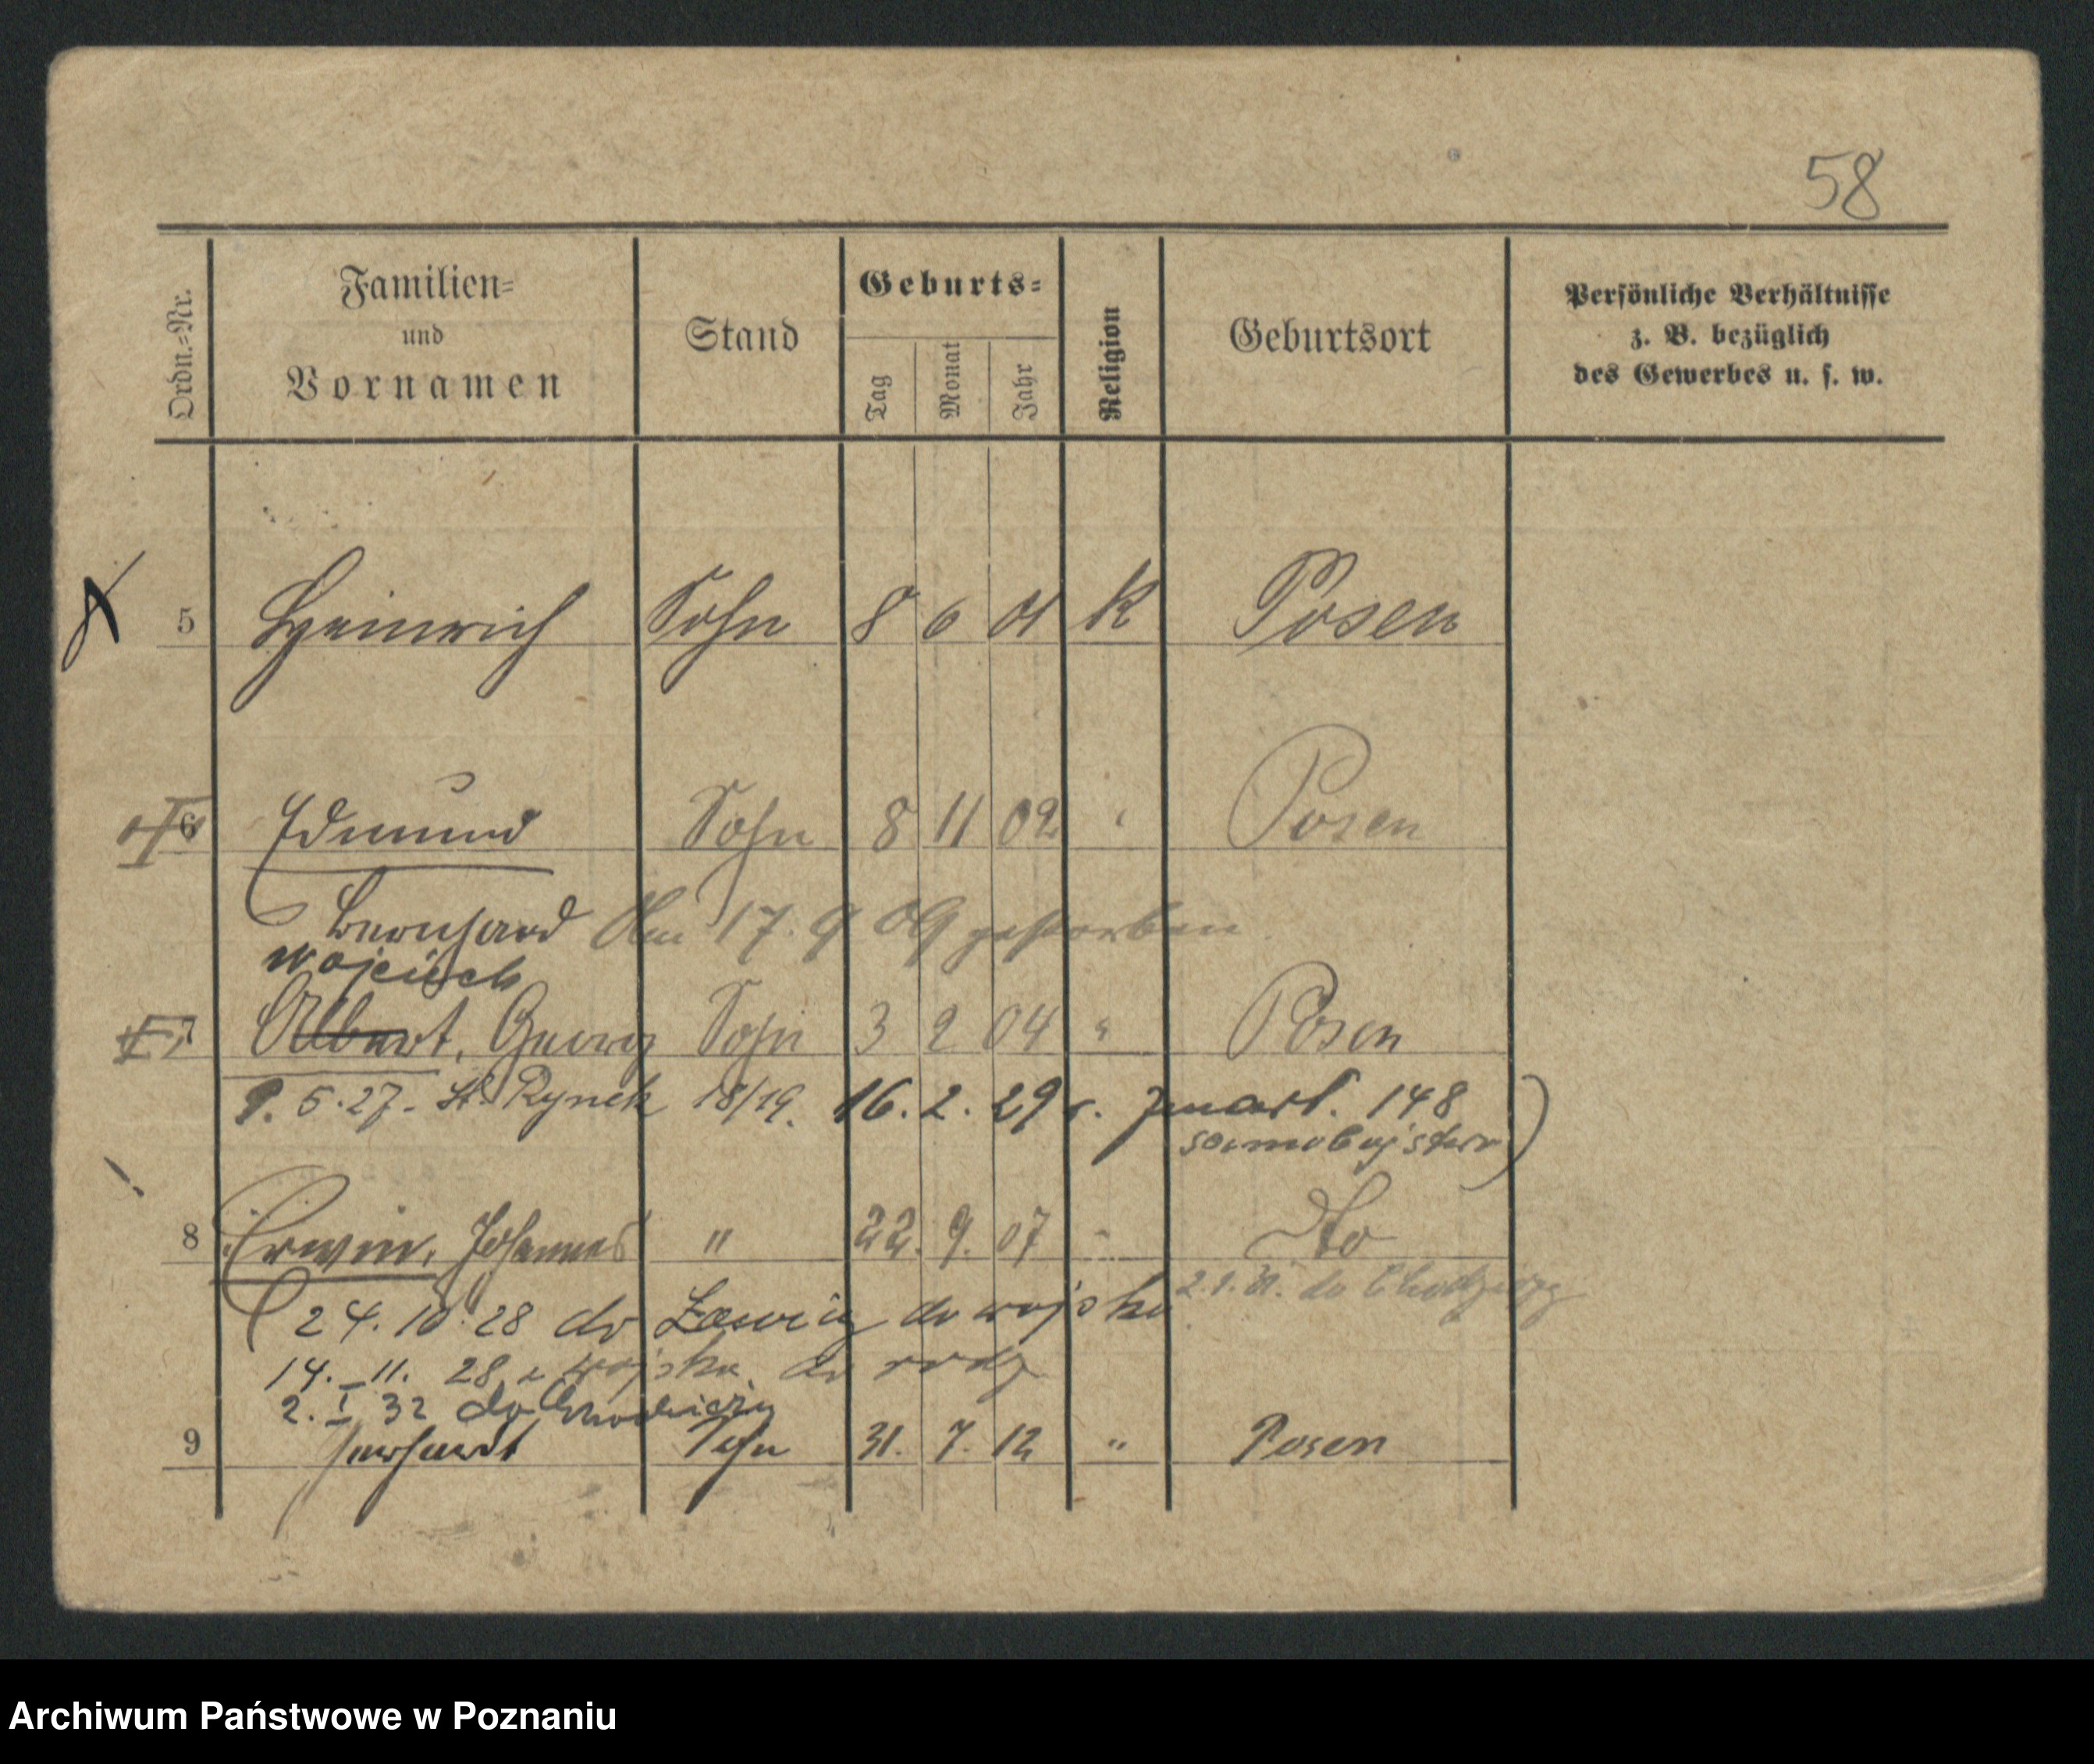 58
Ordn.=Nr. Familien= und Vornamen Stand Geburts= Tag Monat Jahr Religion Geburtsort Persönliche Verhältnisse z. B. bezüglich des Gewerbes u. s. w.
5 Heinrich Sohn 8 6 01 K Posen
6 Edmund Sohn 8 11 02 " Posen
Bernhard Am 17. 9 09 gestorben
Wojciech
7 Albert, Georg Sohn 3 2 04 " Posen
9. 5. 27. St. Rynek 18/19. 16. 2. 29 r. zmarł. 148
samobójstwo)
8 Erwin, Johannes " 22. 9. 07 " do
2. 1. 31. do Chodzieży
24. 10. 28 do do wojska
14. 11. 28 z wojska do rodz
2. I 32 do
9 Gerhardt Sohn 31. 7. 12 " Posen
Archiwum Państwowe w Poznaniu